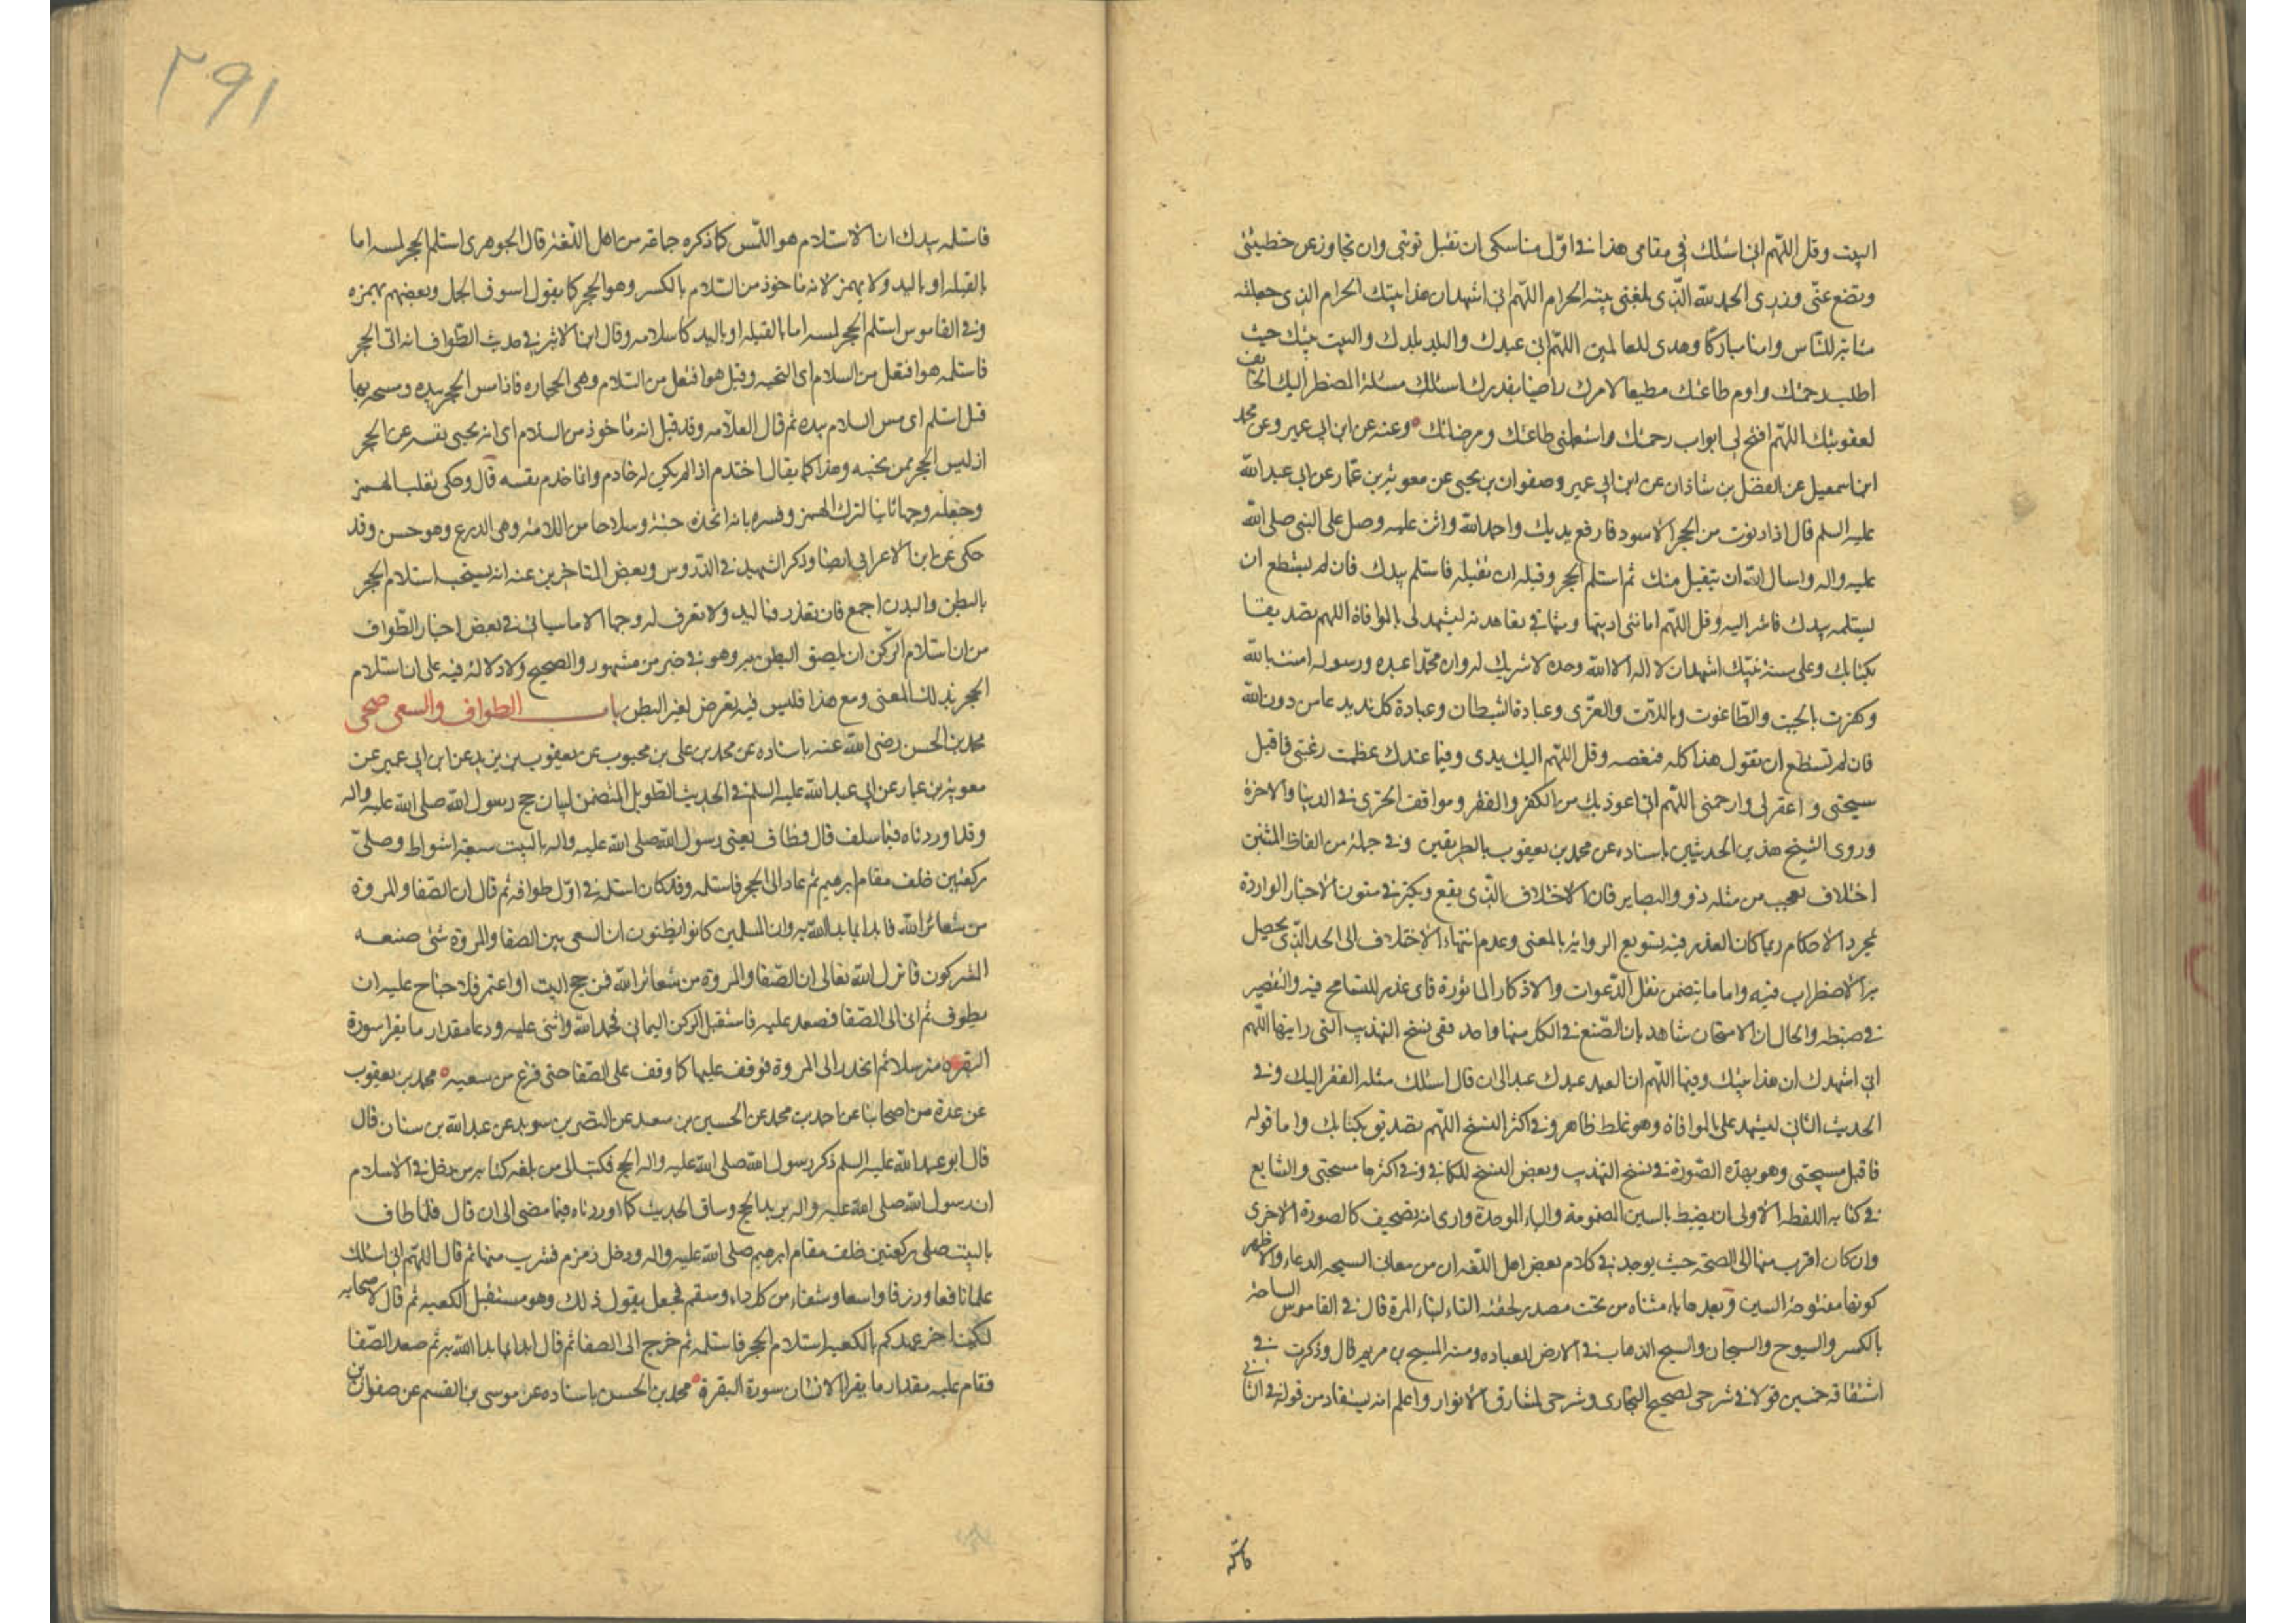 البيت وقل اللهم اني اسئلك في مقامي هذا في اول مناسكي ان تقبل توبتي وان تجاوز عن خطيئتي
وتضع عني وزري الحمد لله الذي بلغني بيته الحرام اللهم اني اشهد ان هذا بيتك الحرام الذي جعلته
مثابة للناس وامنا مباركا وهدى للعالمين اللهم اني عبدك والبلد بلدك والبيت بيتك جئت
اطلب رحمتك واؤم طاعتك مطيعا لامرك راضيا بقدرك اسئلك مسئلة المضطر اليك الخائف
لعقوبتك اللهم افتح لي ابواب رحمتك واستعملني بطاعتك ومرضاتك وعنه عن ابن ابي عمير وعن محمد
ابن اسمعيل عن الفضل بن شاذان عن ابن ابي عمير وصفوان بن يحيى عن معوية بن عمار عن ابي عبد الله
عليه السلم قال اذا دنوت من الحجر الاسود فارفع يديك واحمد الله واثن عليه وصل على النبي صلى الله
عليه واله واسال الله ان يتقبل منك ثم استلم الحجر وقبله ان تقبله فاستلم بيدك فان لم يستطع ان
يستلمه بيدك فاشر اليه وقل اللهم امانتي اديتها وميثاقي تعاهدته ليشهد لي بالموافاة اللهم تصديقا
بكتابك وعلى سنة نبيك اشهد ان لا اله الا الله وحده لا شريك له وان محمدا عبده ورسوله امنت بالله
وكفرت بالجبت والطاغوت وباللات والعزى وعبادة الشيطان وعبادة كل ند يدعا من دون الله
فان لم تستطع ان تقول هذا كله فبعضه وقل اللهم اليك يدي وفيما عندك عظمت رغبتي فاقبل
سيحتي واغفر لي وارحمني اللهم اني اعوذ بك من الكفر والفقر ومواقف الخزي في الدنيا والاخرة
وروى الشيخ هذين الحديثين باسناده عن محمد بن يعقوب بالطريقين وفي جملة من الفاظ المتنين
اختلاف يعجب من مثله ذوو البصاير فان الاختلاف الذي يقع ويكثر في متون الاخبار الواردة
لمجرد الاحكام ربما كان العذر فيه تسويغ الرواية بالمعنى وعدم انتهاء الاختلاف الى الحد الذي يحصل
به الاضطراب فيه واما ما يتضمن نقل الدعوات والاذكار الماثورة فاي عذر للتسامح فيه والتقصير
في ضبطه والحال ان الامتحان شاهد بان الصنع في الكل منها واحد ففي نسخ التهذيب التي رايتها اللهم
اني اشهدك ان هذا بيتك وفيها اللهم ان العبد عبدك عبد الى ان قال اسئلك مثله الفقر اليك وفي
الحديث الثاني ليشهد على بالموافاة وهو غلط ظاهر وفي اكثر النسخ اللهم تصديق بكتابك واما قوله
فاقبل مسيحتي وهو بهذه الصورة في نسخ التهذيب وبعض النسخ للكافي وفي اكثرها مسبحتي والشايع
في كتابه اللفظه الاولى ان يضبط بالسين المضمومة والباء الموحدة وارى انه تصحيف كالصورة الاخرى
وان كان اقرب منها الى الصحة حيث يوجد في كلام بعض اهل اللغه ان من معاني السبحه الدعاء والاظهر
كونها مفتوحة السين وبعدها ياء مثناه من تحت مصدر لحقته التاء لبناء المرة قال في القاموس الساحة
بالكسر والسيوح والسيحان والسيح الذهاب في الارض للعباده ومنه المسيح بن مريم قال وذكرت في
اشتقاقه خمسين قولا في شرحي لصحيح البخاري وشرحي لمشارق الانوار واعلم انه يستفاد من قوله في الثاني
فاستلمه
٢٩١
فاستلمه بيدك ان الاستلام هو اللمس كما ذكره جماعة من اهل اللغة قال الجوهري استلم الحجر لمسه اما
بالقبله او باليد ولا يهمز لانه ماخوذ من السلام بالكسر وهو الحجر كما يقول استوق الجمل وبعضهم يهمزه
وفي القاموس استلم الحجر لمسه اما بالقبله او باليد كاستلامه وقال ابن الاثير في حديث الطواف انه اتى الحجر
فاستلمه هو افتعل من السلام اى التحيه وقيل هو افتعل من السلام وهي الحجاره فاذا مس الحجر بيده ومسحه بها
قيل استلم اى مس السلام بيده ثم قال العلامه وقد قيل انه ماخوذ من السلام اى انه يحيى نفسه عن الحجر
اذ ليس الحجر ممن يحييه وهذا كما يقال اختدم اذا لم يكن له خادم وانما خدم نفسه قال وحكى ثعلب الهمز
وجعله وجها ثانيا لترك الهمز وفسره بانه اتخذه جنة وسلاحا من اللامة وهي الدرع وهو حسن وقد
حكى عن ابن الاعرابي ايضا وذكر الشهيد في الدروس وبعض المتاخرين عنه انه يستحب استلام الحجر
بالبطن والبدن اجمع فان تعذر فباليد ولا نعرف له وجها الا ما سياتي في بعض اخبار الطواف
من ان استلام الركن ان يلصق البطن به وهو في خبر من مشهوري الصحيح ولا دلالة فيه على ان استلام
الحجر بذلك المعنى ومع هذا فليس فيه تعرض لغير البطن باب الطواف والسعي صحي
محمد بن الحسن رضي الله عنه باسناده عن محمد بن علي بن محبوب عن يعقوب بن يزيد عن ابن ابي عمير عن
معوية بن عمار عن ابي عبد الله عليه السلم في الحديث الطويل المتضمن لبيان حج رسول الله صلى الله عليه واله
وقد اوردناه فيما سلف قال فطاف يعني رسول الله صلى الله عليه واله بالبيت سبعة اشواط وصلى
ركعتين خلف مقام ابرهيم ثم عاد الى الحجر فاستلمه وقد كان استلمه في اول طوافه ثم قال ان الصفا والمروة
من شعائر الله فابدا بما بدا الله به وان المسلمين كانوا يظنون ان السعي بين الصفا والمروة شئ صنعه
المشركون فانزل الله تعالى ان الصفا والمروة من شعائر الله فمن حج البيت او اعتمر فلا جناح عليه ان
يطوف ثم اتى الى الصفا فصعد عليه فاستقبل الركن اليماني فحمد الله واثنى عليه ودعا مقدار ما يقرا سورة
البقرة مترسلا ثم انحدر الى المروة فوقف عليها كما وقف على الصفا حتى فرغ من سعيه محمد بن يعقوب
عن عدة من اصحابنا عن احمد بن محمد عن الحسين بن سعيد عن النضر بن سويد عن عبد الله بن سنان قال
قال ابو عبد الله عليه السلم ذكر رسول الله صلى الله عليه واله الحج فكتب الى من بلغه كتابه ممن دخل في الاسلام
ان رسول الله صلى الله عليه واله يريد الحج وساق الحديث كما اوردناه فيما مضى الى ان قال فلما طاف
بالبيت صلى ركعتين خلف مقام ابرهيم صلى الله عليه واله ودخل زمزم فشرب منها ثم قال اللهم اني اسئلك
علما نافعا ورزقا واسعا وشفاء من كل داء وسقم فجعل يقول ذلك وهو مستقبل الكعبه ثم قال لاصحابه
ليكن اخر عهدكم بالكعبه استلام الحجر فاستلمه ثم خرج الى الصفا ثم قال ابدا بما بدا الله به ثم صعد الصفا
فقام عليه مقدار ما يقرا الانسان سورة البقرة محمد بن الحسن باسناده عن موسى بن القسم عن صفوان بن